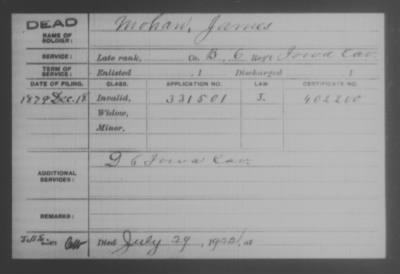 DEAD
NAME OF SOLDIER: Mohaw, James
SERVICE: Late rank, Co. B, 6 Reg't Iowa Cav
TERM OF SERVICE: Enlisted , 1 Discharged , 1
DATE OF FILING. CLASS. APPLICATION NO. LAW. CERTIFICATE NO.
1879 Dec. 18 Invalid, 331501 402200
Widow,
Minor,
ADDITIONAL SERVICES: D 6 Iowa Cav
REMARKS:
Died July 29, 192 , at